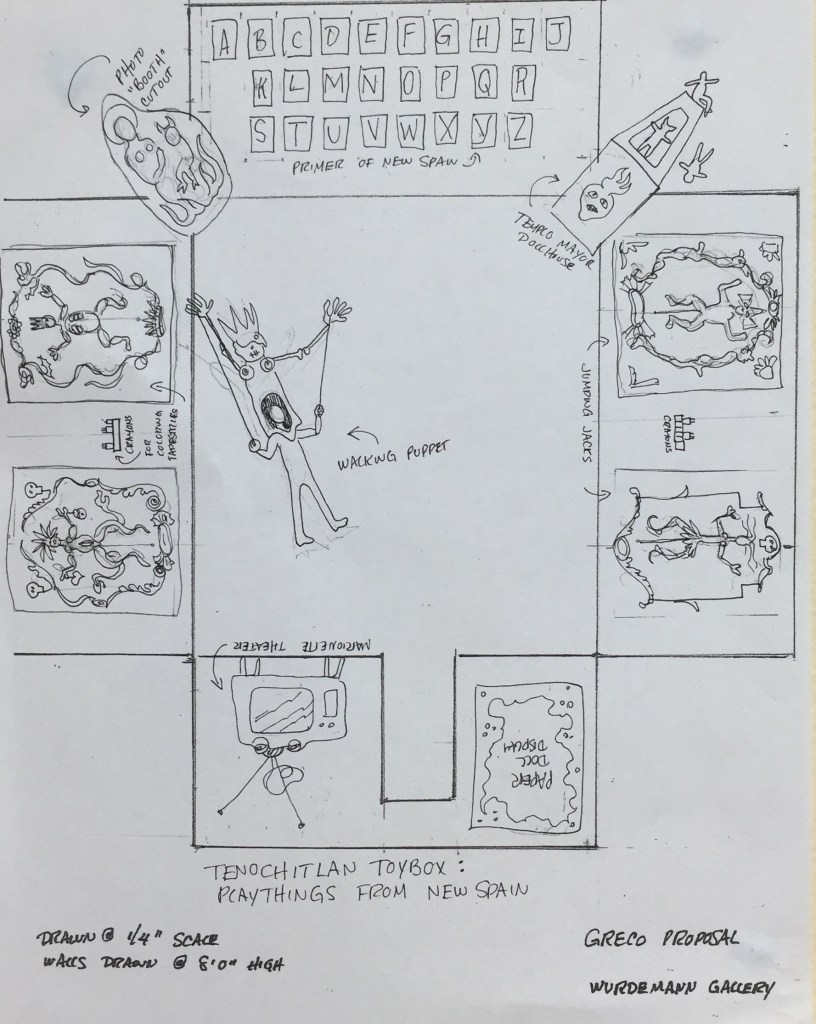 A B C D E F G H I J
K L M N O P Q R
S T U V W X Y Z
PRIMER OF NEW SPAIN
PHOTO
"BOOTH"
CUTOUT
TEMPLO MAYOR
DOLLHOUSE
CRAYONS
FOR COLORING
TAPESTRIES
WALKING PUPPET
JUMPING JACKS
CRAYONS
MARIONETTE THEATER
PAPER
DOLL
DISPLAY
TENOCHITLAN TOYBOX:
PLAYTHINGS FROM NEW SPAIN
DRAWN @ 1/4" SCALE
WALLS DRAWN @ 8'0" HIGH
GRECO PROPOSAL
WURDEMANN GALLERY